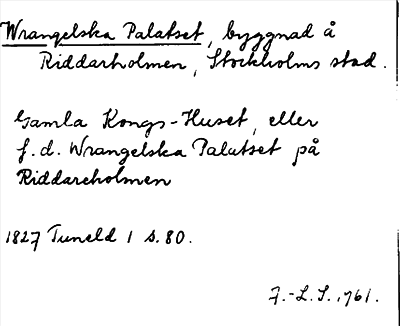 Wrangelska Palatset, byggnad å
Riddarholmen, Stockholms stad.
Gamla Kongs-Huset, eller
f.d. Wrangelska Palatset på
Riddareholmen
1827 Tuneld 1 s. 80.
F.-L.S., 1961.